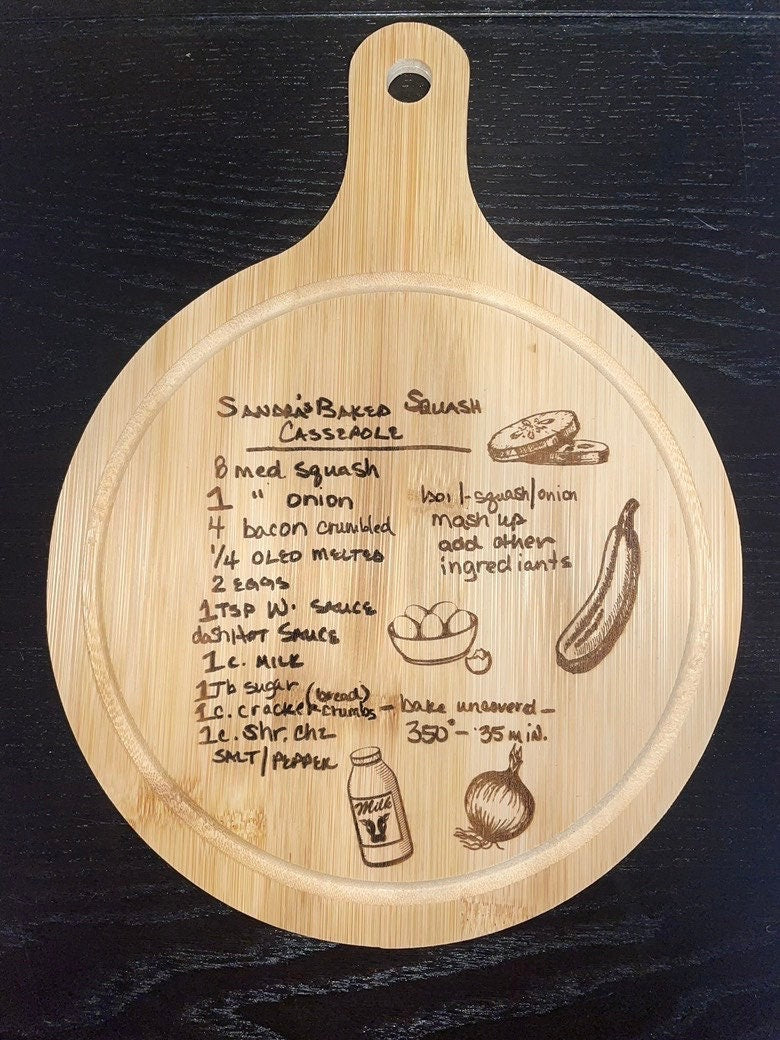 SANDRA'S BAKED SQUASH
CASSEROLE
8 med squash
1 " onion
4 bacon crumbled
1/4 OLEO MELTED
2 EGGS
1 TSP W. SAUCE
dash HOT SAUCE
1 c. MILK
1 Tb sugar
1 c. cracker (bread) crumbs
1 c. Shr. Chz
SALT/PEPPER
boil-squash/onion
mash up
add other
ingrediants
- bake uncoverd -
350° - 35 min.
Milk